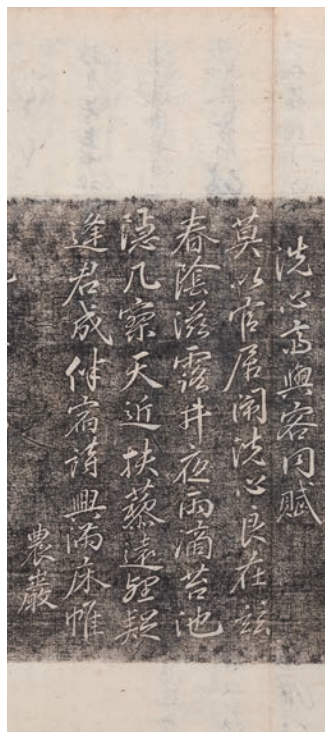 洗心與客同賦
莫以官居閙洗心良在玆
春陰滋露井夜雨滴苔池
隱几寥天近扶藜遠疑
逢君成伴宿詩興滿床帷
農巖